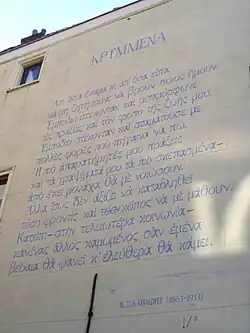 ΚΡΥΜΜΕΝΑ
Απ' όσα έκαμα κι απ' όσα είπα
να μη ζητήσουνε να βρουν ποιός ήμουν.
Εμπόδιο στέκονταν και μεταμόρφωνε
τες πράξεις και τον τρόπο της ζωής μου.
Εμπόδιο στέκονταν και σταματούσε με
πολλές φορές που πήγαινα να πω.
Η πιο απαρατήρητές μου πράξεις
και τα γραψίματά μου τα πιο σκεπασμένα—
από εκεί μονάχα θα με νιώσουν.
Αλλά ίσως δεν αξίζει να καταβληθεί
τόση φροντίς και τόσος κόπος να με μάθουν.
Κατόπι—στην τελειοτέρα κοινωνία—
κανένας άλλος καμωμένος σαν εμένα
βέβαια θα φανεί κ' ελεύθερα θα κάμει.
Κ.Π. ΚΑΒΑΦΗΣ (1863-1933)